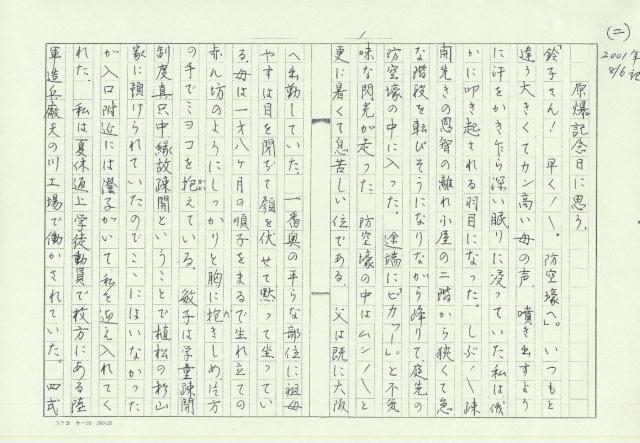 (二)
2001年
8/6記
原爆記念日に思う.
「鈴子さん! 早く〱。防空壕へ」。いつもと
違う大きくてカン高い母の声. 噴き出すよう
に汗をかき乍ら深い眠りに浸っていた私は俄
かに叩き起される羽目になった。しぶ〱疎
開先きの恩智の離れ小屋の二階から狭くて急
な階段を転びそうになりながら降りて、庭先の
防空壕の中に入った。途端に「ピカァー」と不気
味な閃光が走った. 防空壕の中はムン〱と
更に暑くて息苦しい位である. 父は既に大阪
へ出勤していた、一番奥の平らな部位に祖母
やすは目を閉ぢて顔を伏せて黙って坐ってい
る. 母は一才八ヶ月の順子をまるで生れ立ての
赤ん坊のようにしっかりと胸に抱きしめ片方
の手でミヨコを抱えている. 敏子は学童疎開
制度真只中、縁故疎開ということで植松の杉山
家に預けられていたのでこゝにはいなかった
が入口附近には澄子がいて私を迎え入れてく
れた. 私は夏休返上学徒動員で枚方にある陸
軍造兵廠天の川工場で働かされていた。四式
コクヨ ケ-20 20×20